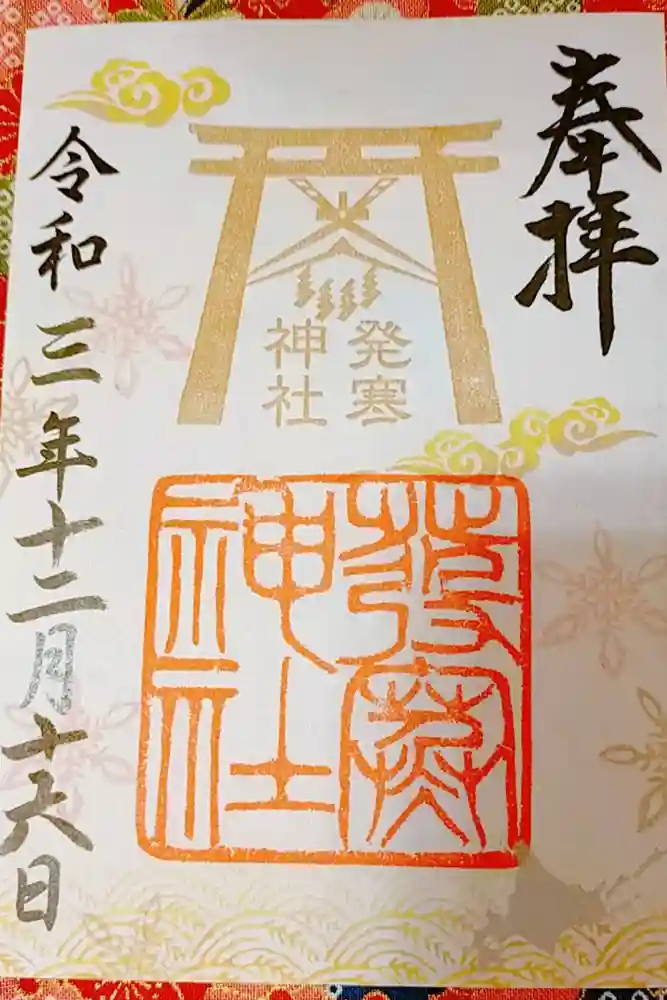 奉拝
発寒
神社
發寒
神社
令和三年十二月十六日